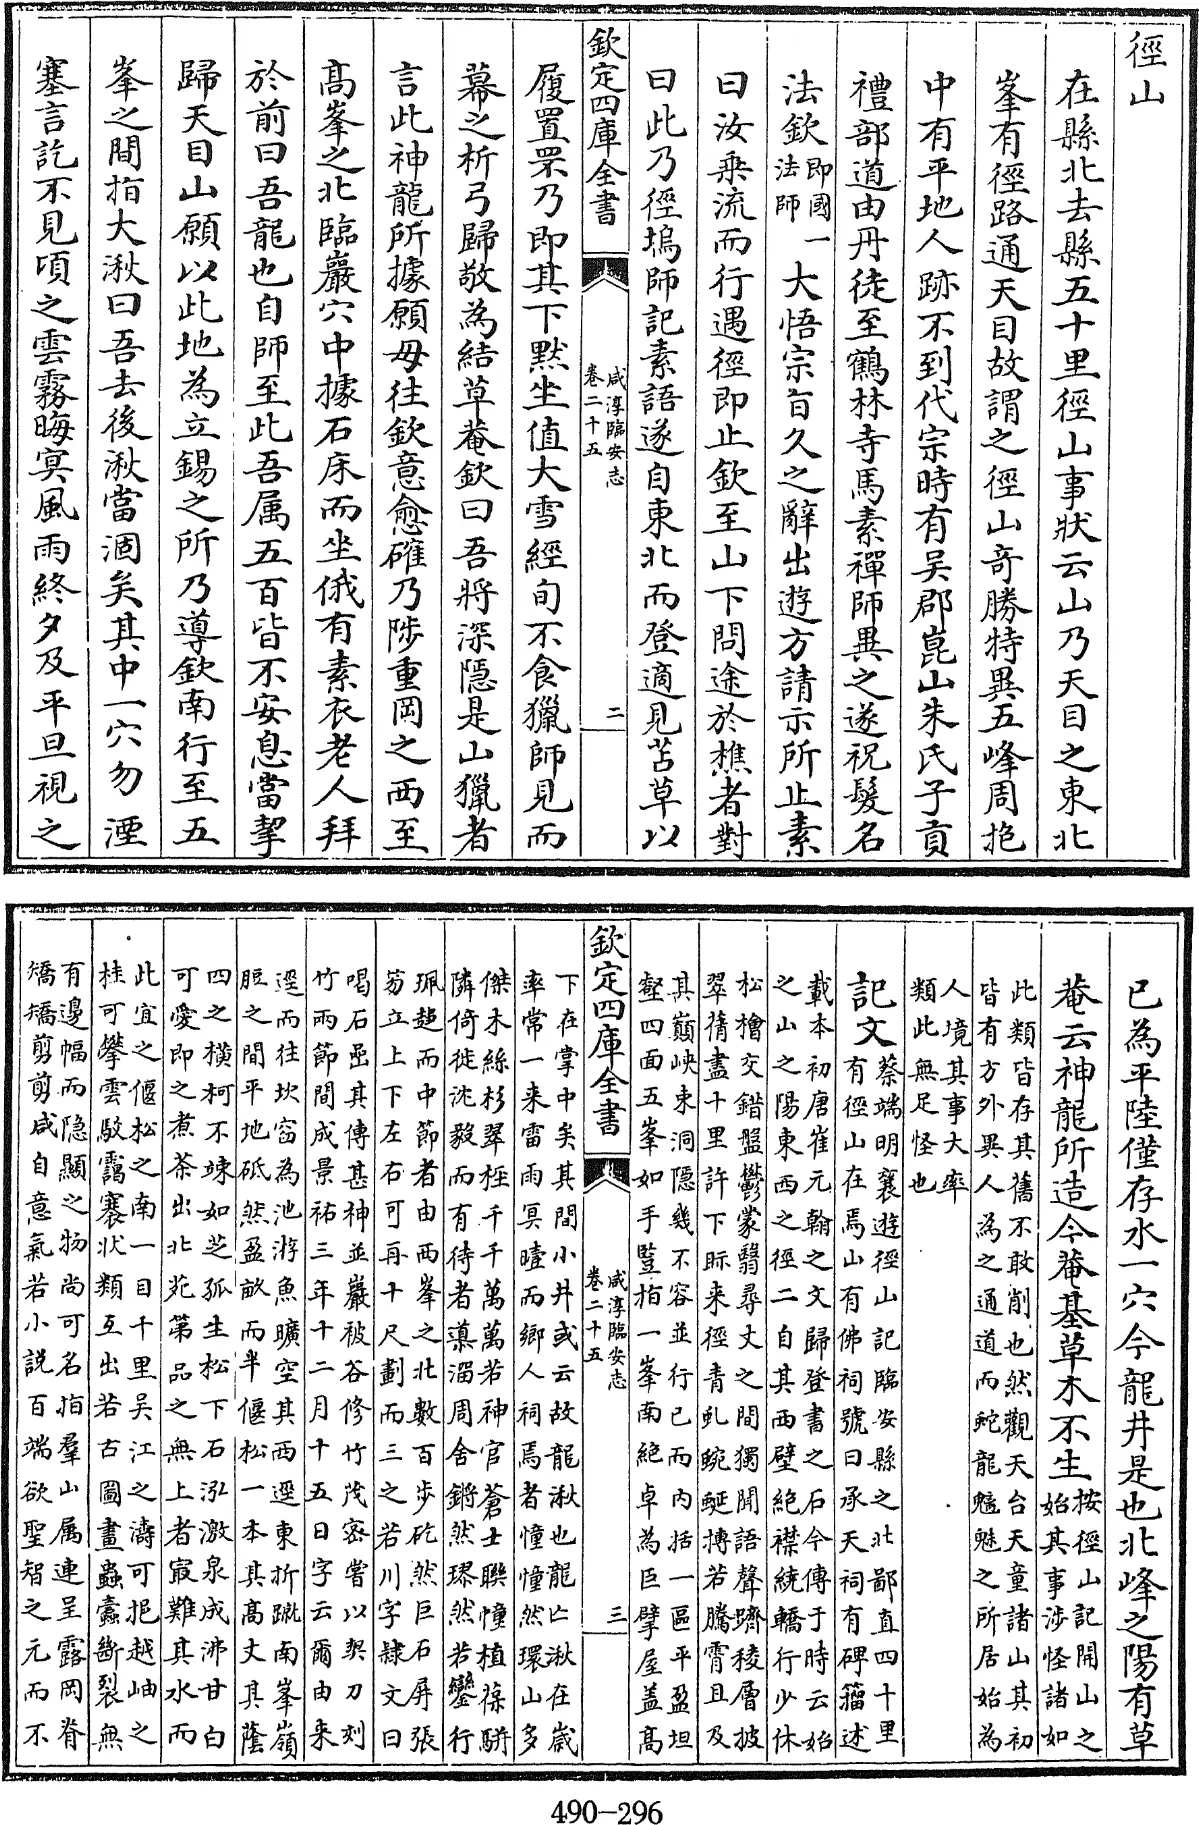 徑山
在縣北去縣五十里徑山事狀云山乃天目之東北
峯有徑路通天目故謂之徑山竒勝特異五峰周抱
中有平地人跡不到代宗時有吴郡崑山朱氏子貢
禮部道由丹徒至鶴林寺馬素禪師異之遂祝髮名
法欽即國法師一大悟宗旨久之辭出遊方請示所止素
曰汝乗流而行遇徑即止欽至山下問途於樵者對
曰此乃徑塢師記素語遂自東北而登適見苫草以
欽定四庫全書
咸淳臨安志
卷二十五
二
履置罘乃即其下黙坐值大雪經旬不食獵師見而
幕之析弓歸敬為結草菴欽曰吾將深隱是山獵者
言此神龍所據願毋往欽意愈確乃陟重岡之西至
髙峯之北臨巖穴中據石床而坐俄有素衣老人拜
於前曰吾龍也自師至此吾属五百皆不安息當挈
歸天目山願以此地為立錫之所乃導欽南行至五
峯之間指大湫曰吾去後湫當涸矣其中一穴勿湮
塞言訖不見頃之雲霧晦冥風雨終夕及平旦視之
已為平陸僅存水一穴今龍井是也北峰之陽有草
菴云神龍所造今菴基草木不生按徑山記開山之
始其事涉怪諸如
此類皆存其舊不敢削也然觀天台天童諸山其初
皆有方外異人為之通道而蛇龍魑魅之所居始為
人境其事大率
類此無足怪也
記文蔡端明襄遊徑山記臨安縣之北鄙直四十里
有徑山在焉山有佛祠號曰承天祠有碑籀述
載本初唐崔元翰之文歸登書之石今傳于時云始
之山之陽東西之徑二自其西壁絶襟繞轎行少休
松檜交錯盤鬱蒙翳尋丈之間獨聞語聲躋稜層披
翠蒨盡十里許下眎来徑青虬蜿蜒摶若騰霄且及
其巔峽束洞隠幾不容並行已而内括一區平盈坦
壑四面五峯如手竪指一峯南絶卓為巨擘屋盖髙
欽定四庫全書
咸淳臨安志
卷二十五
三
下在掌中矣其間小井或云故龍湫也龍亡湫在歳
率常一来雷雨冥曀而鄉人祠焉者憧憧然環山多
傑木絲杉翠桱千千萬萬若神官蒼士聯幢植葆駢
隣倚徙沈毅而有待者導溜周舍鏘然璆然若鑾行
珮趍而中節者由西峯之北數百步矻然巨石屏張
笏立上下左右可再十尺劃而三之若川字隸文曰
喝石嵒其傳甚神並巖被谷修竹茂宻嘗以契刀刻
竹兩節間成景祐三年十二月十五日字云爾由来
逕而往坎窞為池游魚曠空其西逕東折蹴南峯嶺
脰之間平地砥然盈畝而半偃松一本其髙丈其蔭
四之横柯不竦如芝孤生松下石泓激泉成沸甘白
可愛即之煮茶出北苑第品之無上者㝡難其水而
此宜之偃松之南一目千里吴江之濤可挹越岫之
桂可攀雲駮靄褰状類互出若古圖畫蟲蠧斷裂無
有邊幅而隐顯之物尚可名指羣山属連呈露岡脊
矯矯剪剪咸自意氣若小説百端欲聖智之元而不
490-296